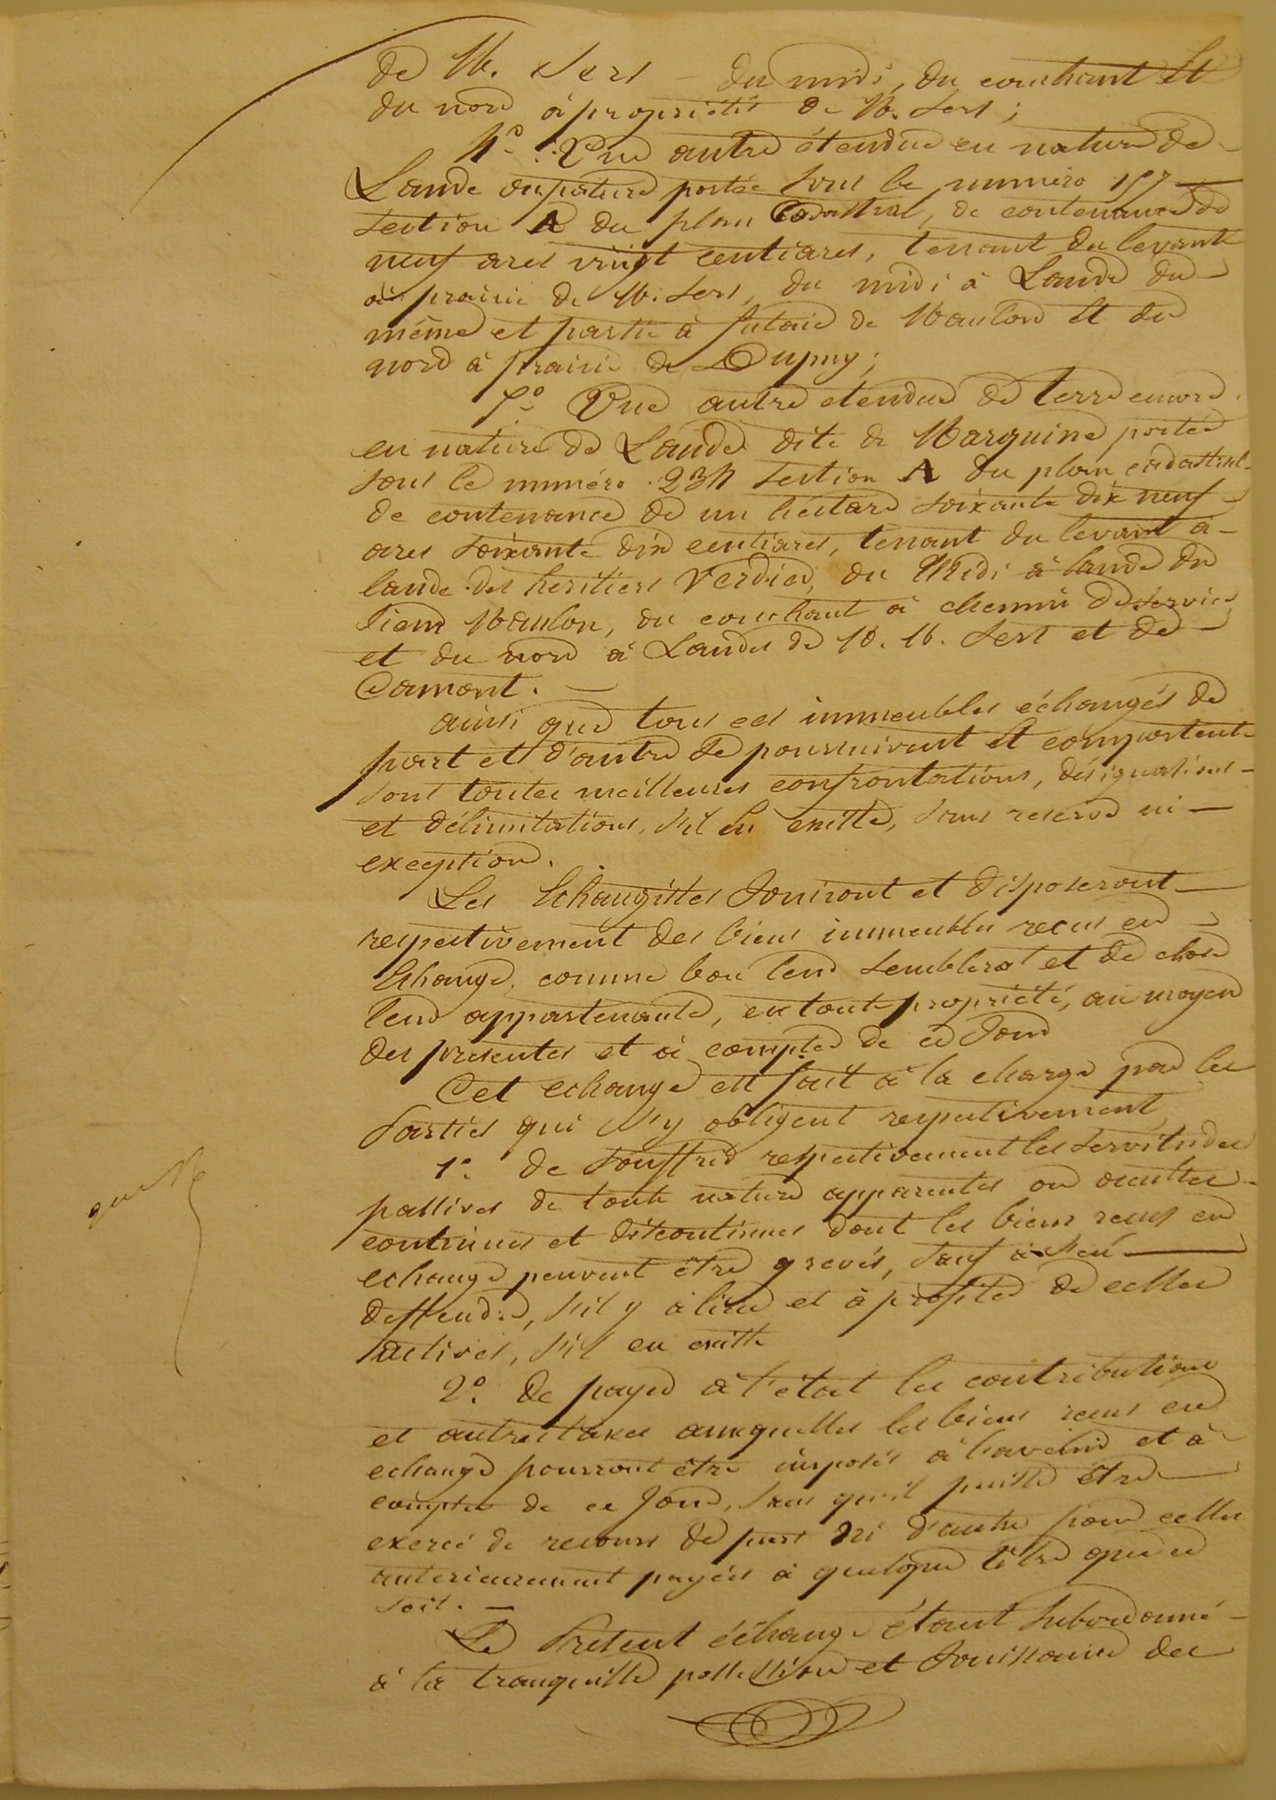 de M. Sers – du midi, du couchant et
du nord à propriétés de M. Sers ;
4° Une autre étendue en nature de
Lande ou pature portée sous le numéro 157
section A du plan Cadastral, de contenance de
neuf ares vingt centiares, tenant du levant
à prairie de M. Sers, du midi à Lande du
même et partie à futaie de Maulon et du
nord à prairie de Dupuy ;
5° Une autre etendue de terre encore
en nature de Lande dite de Marquine portée
sous le numéro 234 section A du plan cadastral
de contenance de un hectare soixante dix neuf
ares soixante dix centiares, tenant du levant à
lande des heritiers Verdier, du Midi à lande du
sieur Maulon, du couchant à chemin de service
et du nord à Landes de M. M. Sers et de
Damont. —
ainsi que tous ces immeubles échangés de
part et d'autre se poursuivent et comportent
sous toutes meilleures confrontations, désignations
et délimitations, s'il en existe, sans reserve ni —
exception.
Les Echangistes Jouiront et disposeront —
respectivement des biens immeubles recus en
Echange, comme bon leur semblera et de chose
leur appartenante, en toute propriété, au moyen
des presentes et à compter de ce Jour
Cet echange est fait à la charge par les
Parties qui s'y obligent respectivement
1° de souffrir respectivement les servitudes
passives de toute nature apparentes ou occultes
continues et discontinues dont les biens recus en
echange peuvent être grevés, sauf à s'en —
deffendre, s'il y à lieu et à profiter de celles
actives, s'il en existe
2° de payer à l'état les contributions
et autres taxes auxquelles les biens recus en
echange pourront être imposés à l'avenir et à
compter de ce Jour, sans qu'il puisse être —
exercé de recours de part ni d'autre pour celles
anterieurement payées à quelque titre que ce
soit. —
Le Présent échange étant subordonné
à la tranquille possession et Jouissance des